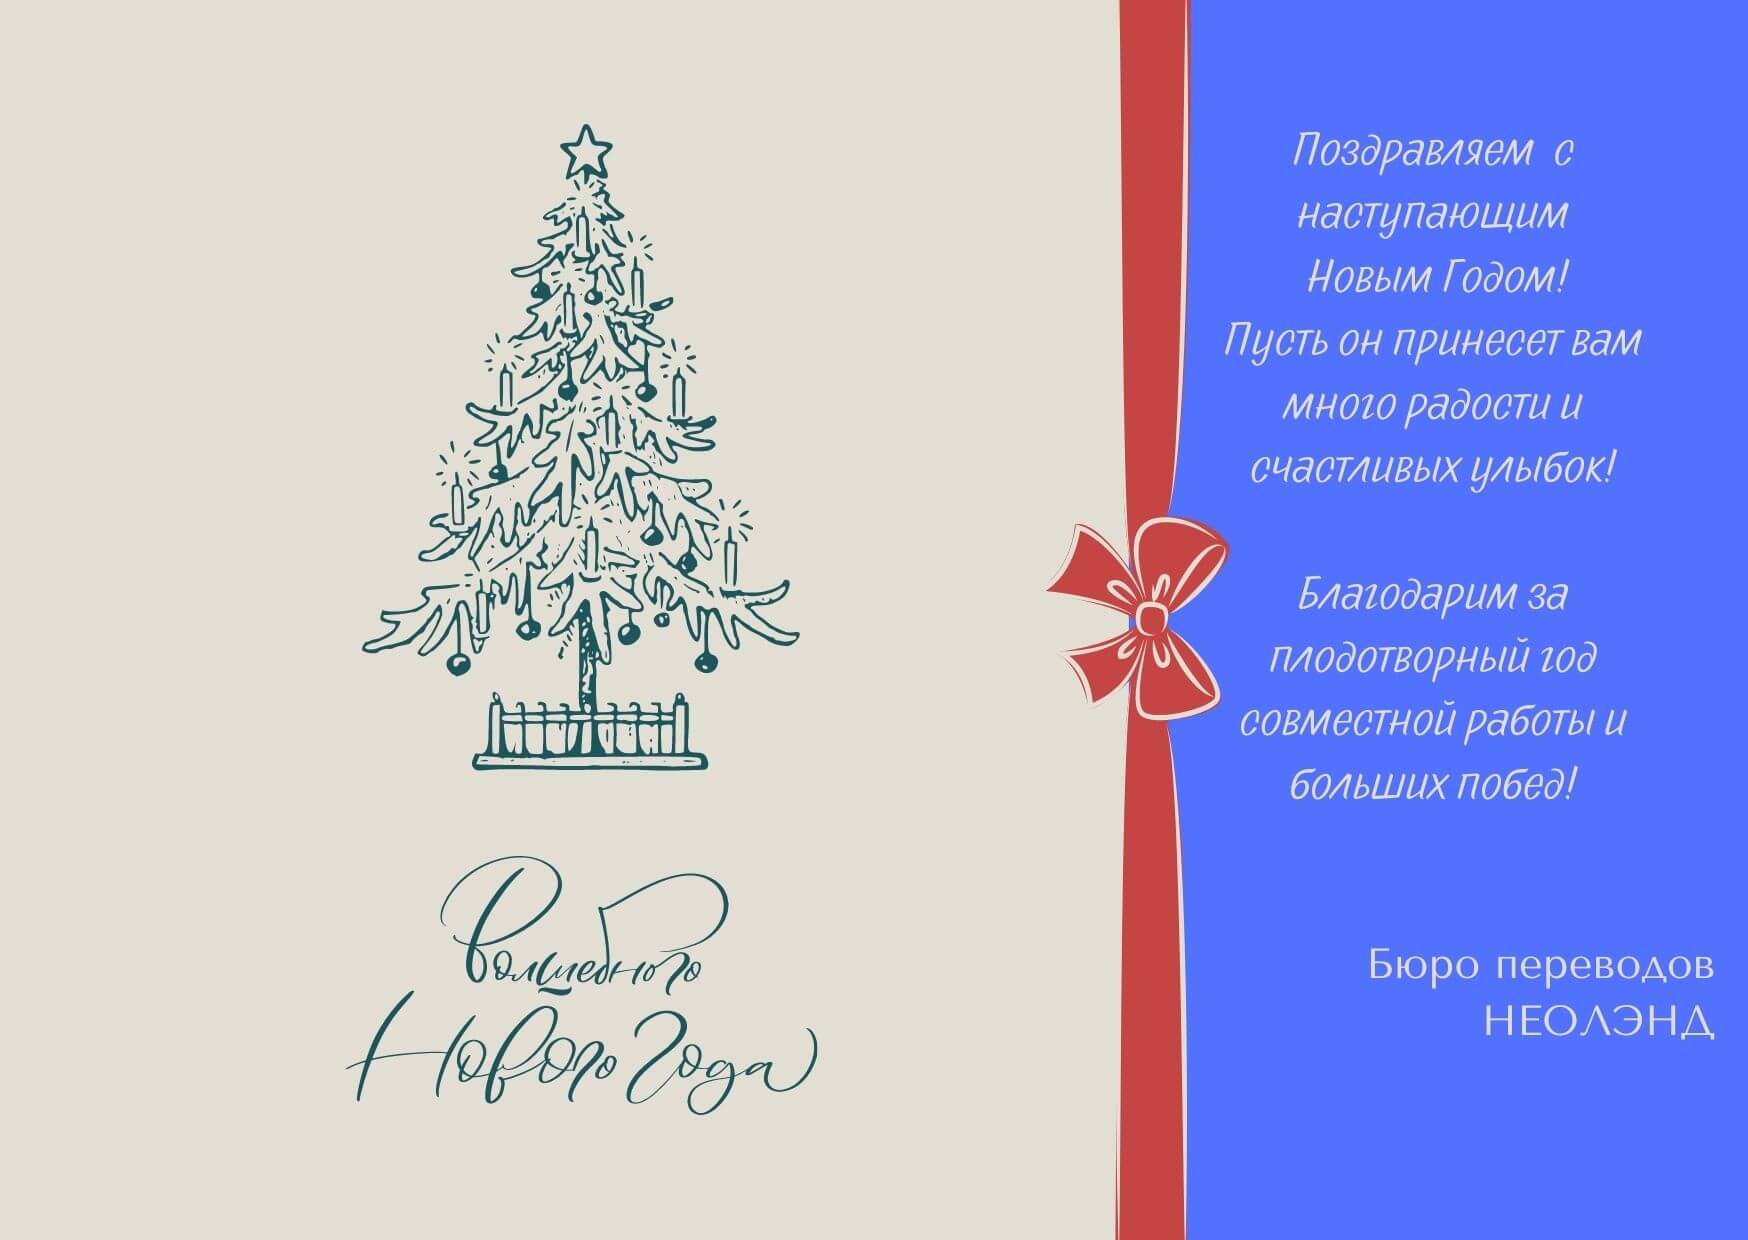 Волшебного
Нового Года
Поздравляем с
наступающим
Новым Годом!
Пусть он принесет вам
много радости и
счастливых улыбок!
Благодарим за
плодотворный год
совместной работы и
больших побед!
Бюро переводов
НЕОЛЭНД